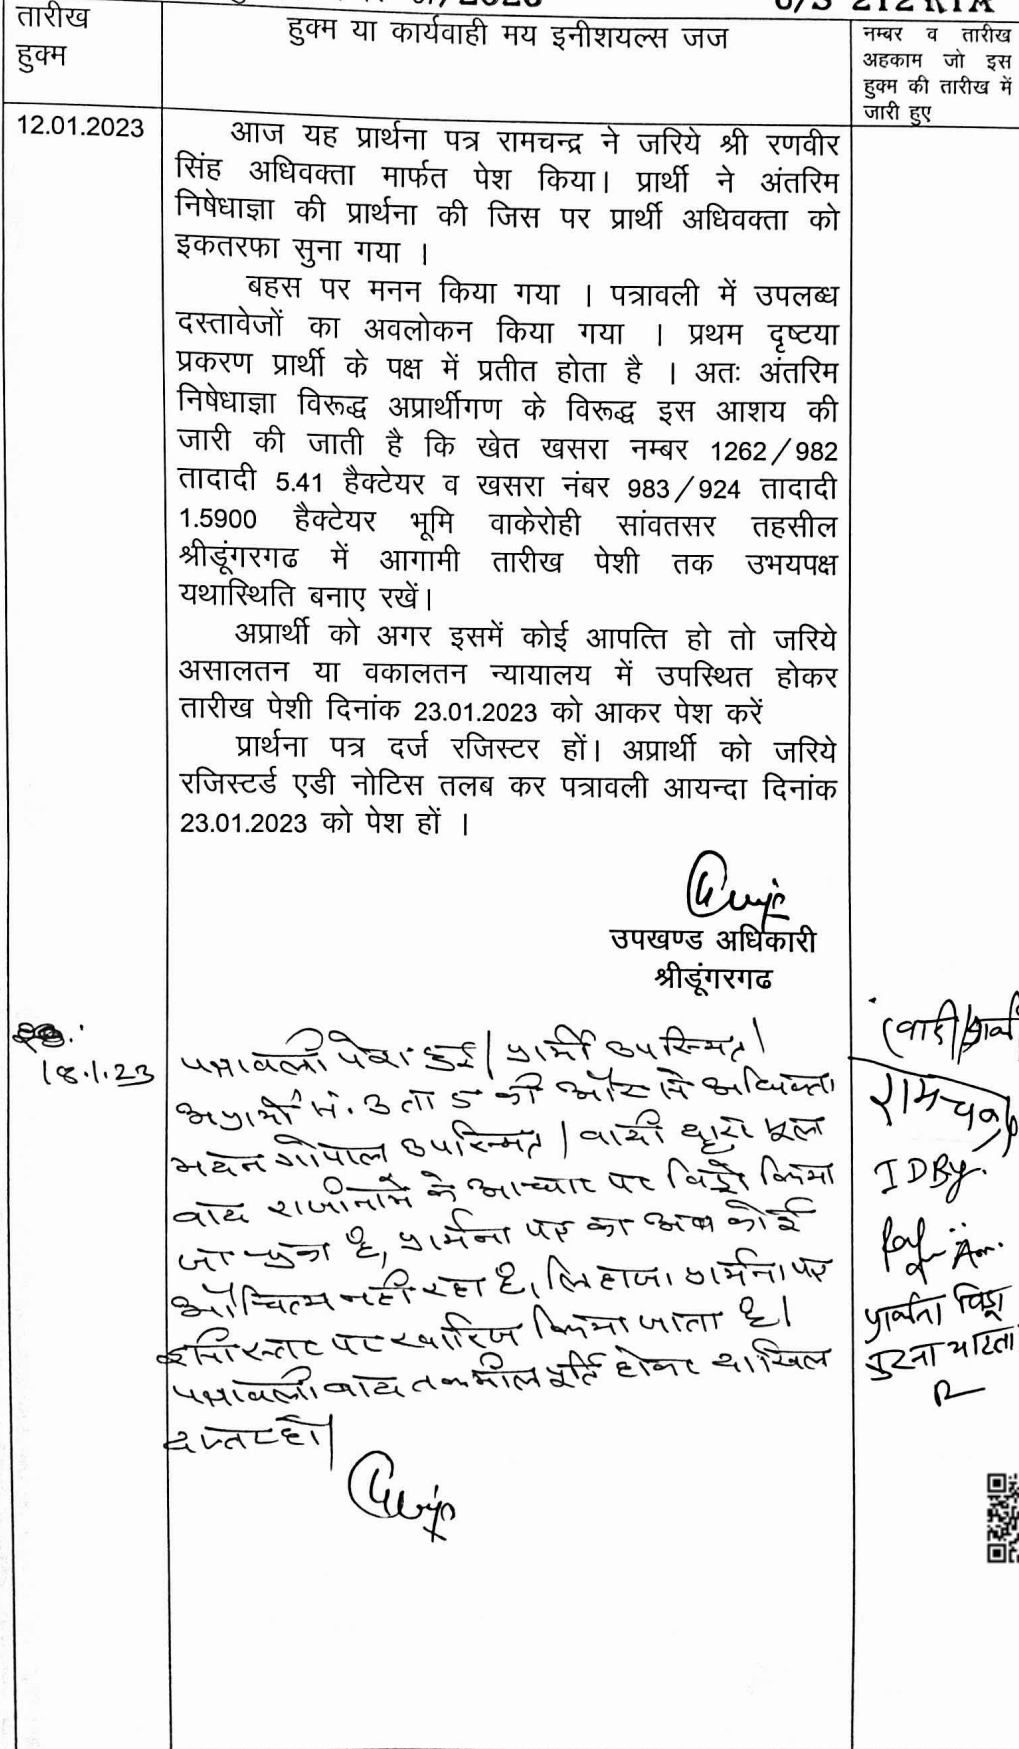 /2023 U/S 212 RTA
तारीख
हुक्म
हुक्म या कार्यवाही मय इनीशयल्स जज
नम्बर व तारीख
अहकाम जो इस
हुक्म की तारीख में
जारी हुए
12.01.2023
आज यह प्रार्थना पत्र रामचन्द्र ने जरिये श्री रणवीर
सिंह अधिवक्ता मार्फत पेश किया। प्रार्थी ने अंतरिम
निषेधाज्ञा की प्रार्थना की जिस पर प्रार्थी अधिवक्ता को
इकतरफा सुना गया ।
बहस पर मनन किया गया । पत्रावली में उपलब्ध
दस्तावेजों का अवलोकन किया गया । प्रथम दृष्टया
प्रकरण प्रार्थी के पक्ष में प्रतीत होता है । अतः अंतरिम
निषेधाज्ञा विरूद्ध अप्रार्थीगण के विरूद्ध इस आशय की
जारी की जाती है कि खेत खसरा नम्बर 1262/982
तादादी 5.41 हैक्टेयर व खसरा नंबर 983/924 तादादी
1.5900 हैक्टेयर भूमि वाकेरोही सांवतसर तहसील
श्रीडूंगरगढ में आगामी तारीख पेशी तक उभयपक्ष
यथास्थिति बनाए रखें।
अप्रार्थी को अगर इसमें कोई आपत्ति हो तो जरिये
असालतन या वकालतन न्यायालय में उपस्थित होकर
तारीख पेशी दिनांक 23.01.2023 को आकर पेश करें
प्रार्थना पत्र दर्ज रजिस्टर हों। अप्रार्थी को जरिये
रजिस्टर्ड एडी नोटिस तलब कर पत्रावली आयन्दा दिनांक
23.01.2023 को पेश हों ।
उपखण्ड अधिकारी
श्रीडूंगरगढ
18.1.23
पत्रावली पेश हुई। प्रार्थी उपस्थित।
अप्रार्थी सं. 3 ता 5 की ओर से अधिवक्ता
मदन गोपाल उपस्थित। वादी द्वारा मूल
वाद राजीनामे के आधार पर विड्रो किया
जा चुका है, प्रार्थना पत्र का अब कोई
औचित्य नहीं रहा है, लिहाजा प्रार्थना पत्र
इसी स्तर पर खारिज किया जाता है।
पत्रावली बाद तकमील पूर्ति होकर दाखिल
दफ्तर हो।
रामचन्द्र
IDBy.
प्रार्थना विड्रा